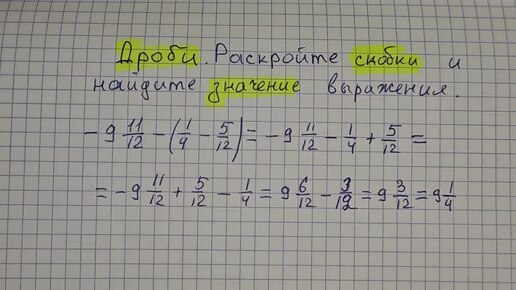 Дроби. Раскройте скобки и
найдите значение выражения.
- 9 11/12 - (1/4 - 5/12) = - 9 11/12 - 1/4 + 5/12 =
= - 9 11/12 + 5/12 - 1/4 = 9 6/12 - 3/12 = 9 3/12 = 9 1/4